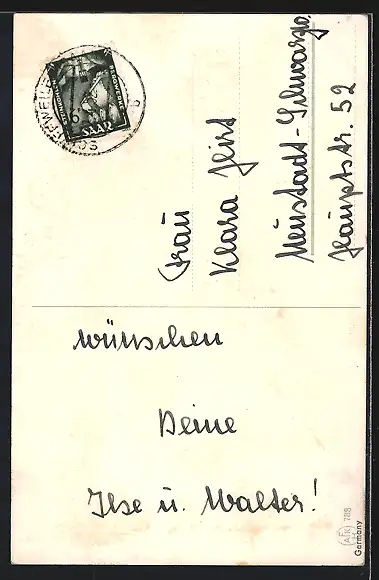 SAAR
Frau
Klara Hirt
Neustadt-Schwarzw.
Hauptstr. 52
wünschen
Deine
Ilse u. Walter!
788
Germany